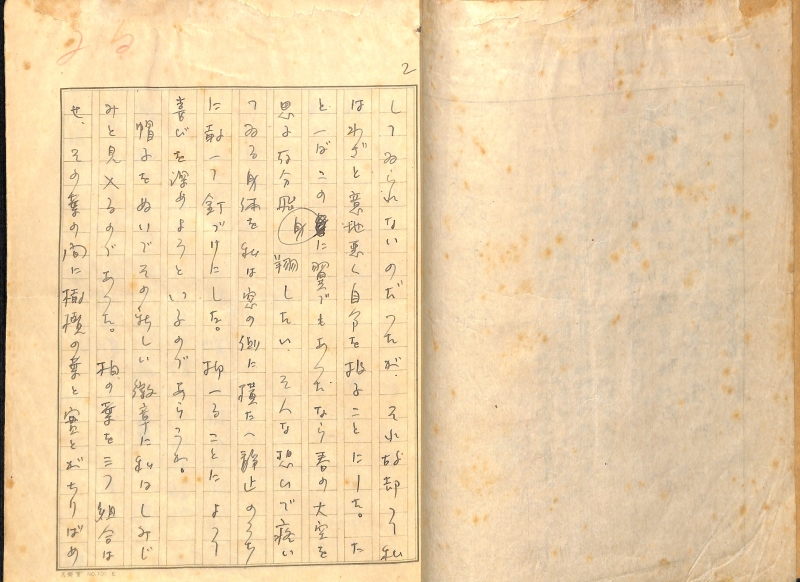 2
してゐられないのだつたが、それを却つて私
はわざと意地悪く自分を抑ることにした。た
とへばこの身に翼でもあつたなら春の大空を
思ふ存分飛翔したい、そんな想ひで疼い
てゐる身体を私は窓の側に横たへ静止のうち
に敢へて釘づけにした。抑へることによつて
喜びを深めようといふのであらうか。
帽子をぬいでその新しい徽章に私はしみじ
みと見入るのであつた。柏の葉を三つ組合は
せ、その葉の間に橄欖の葉と蜜とがちりばめ